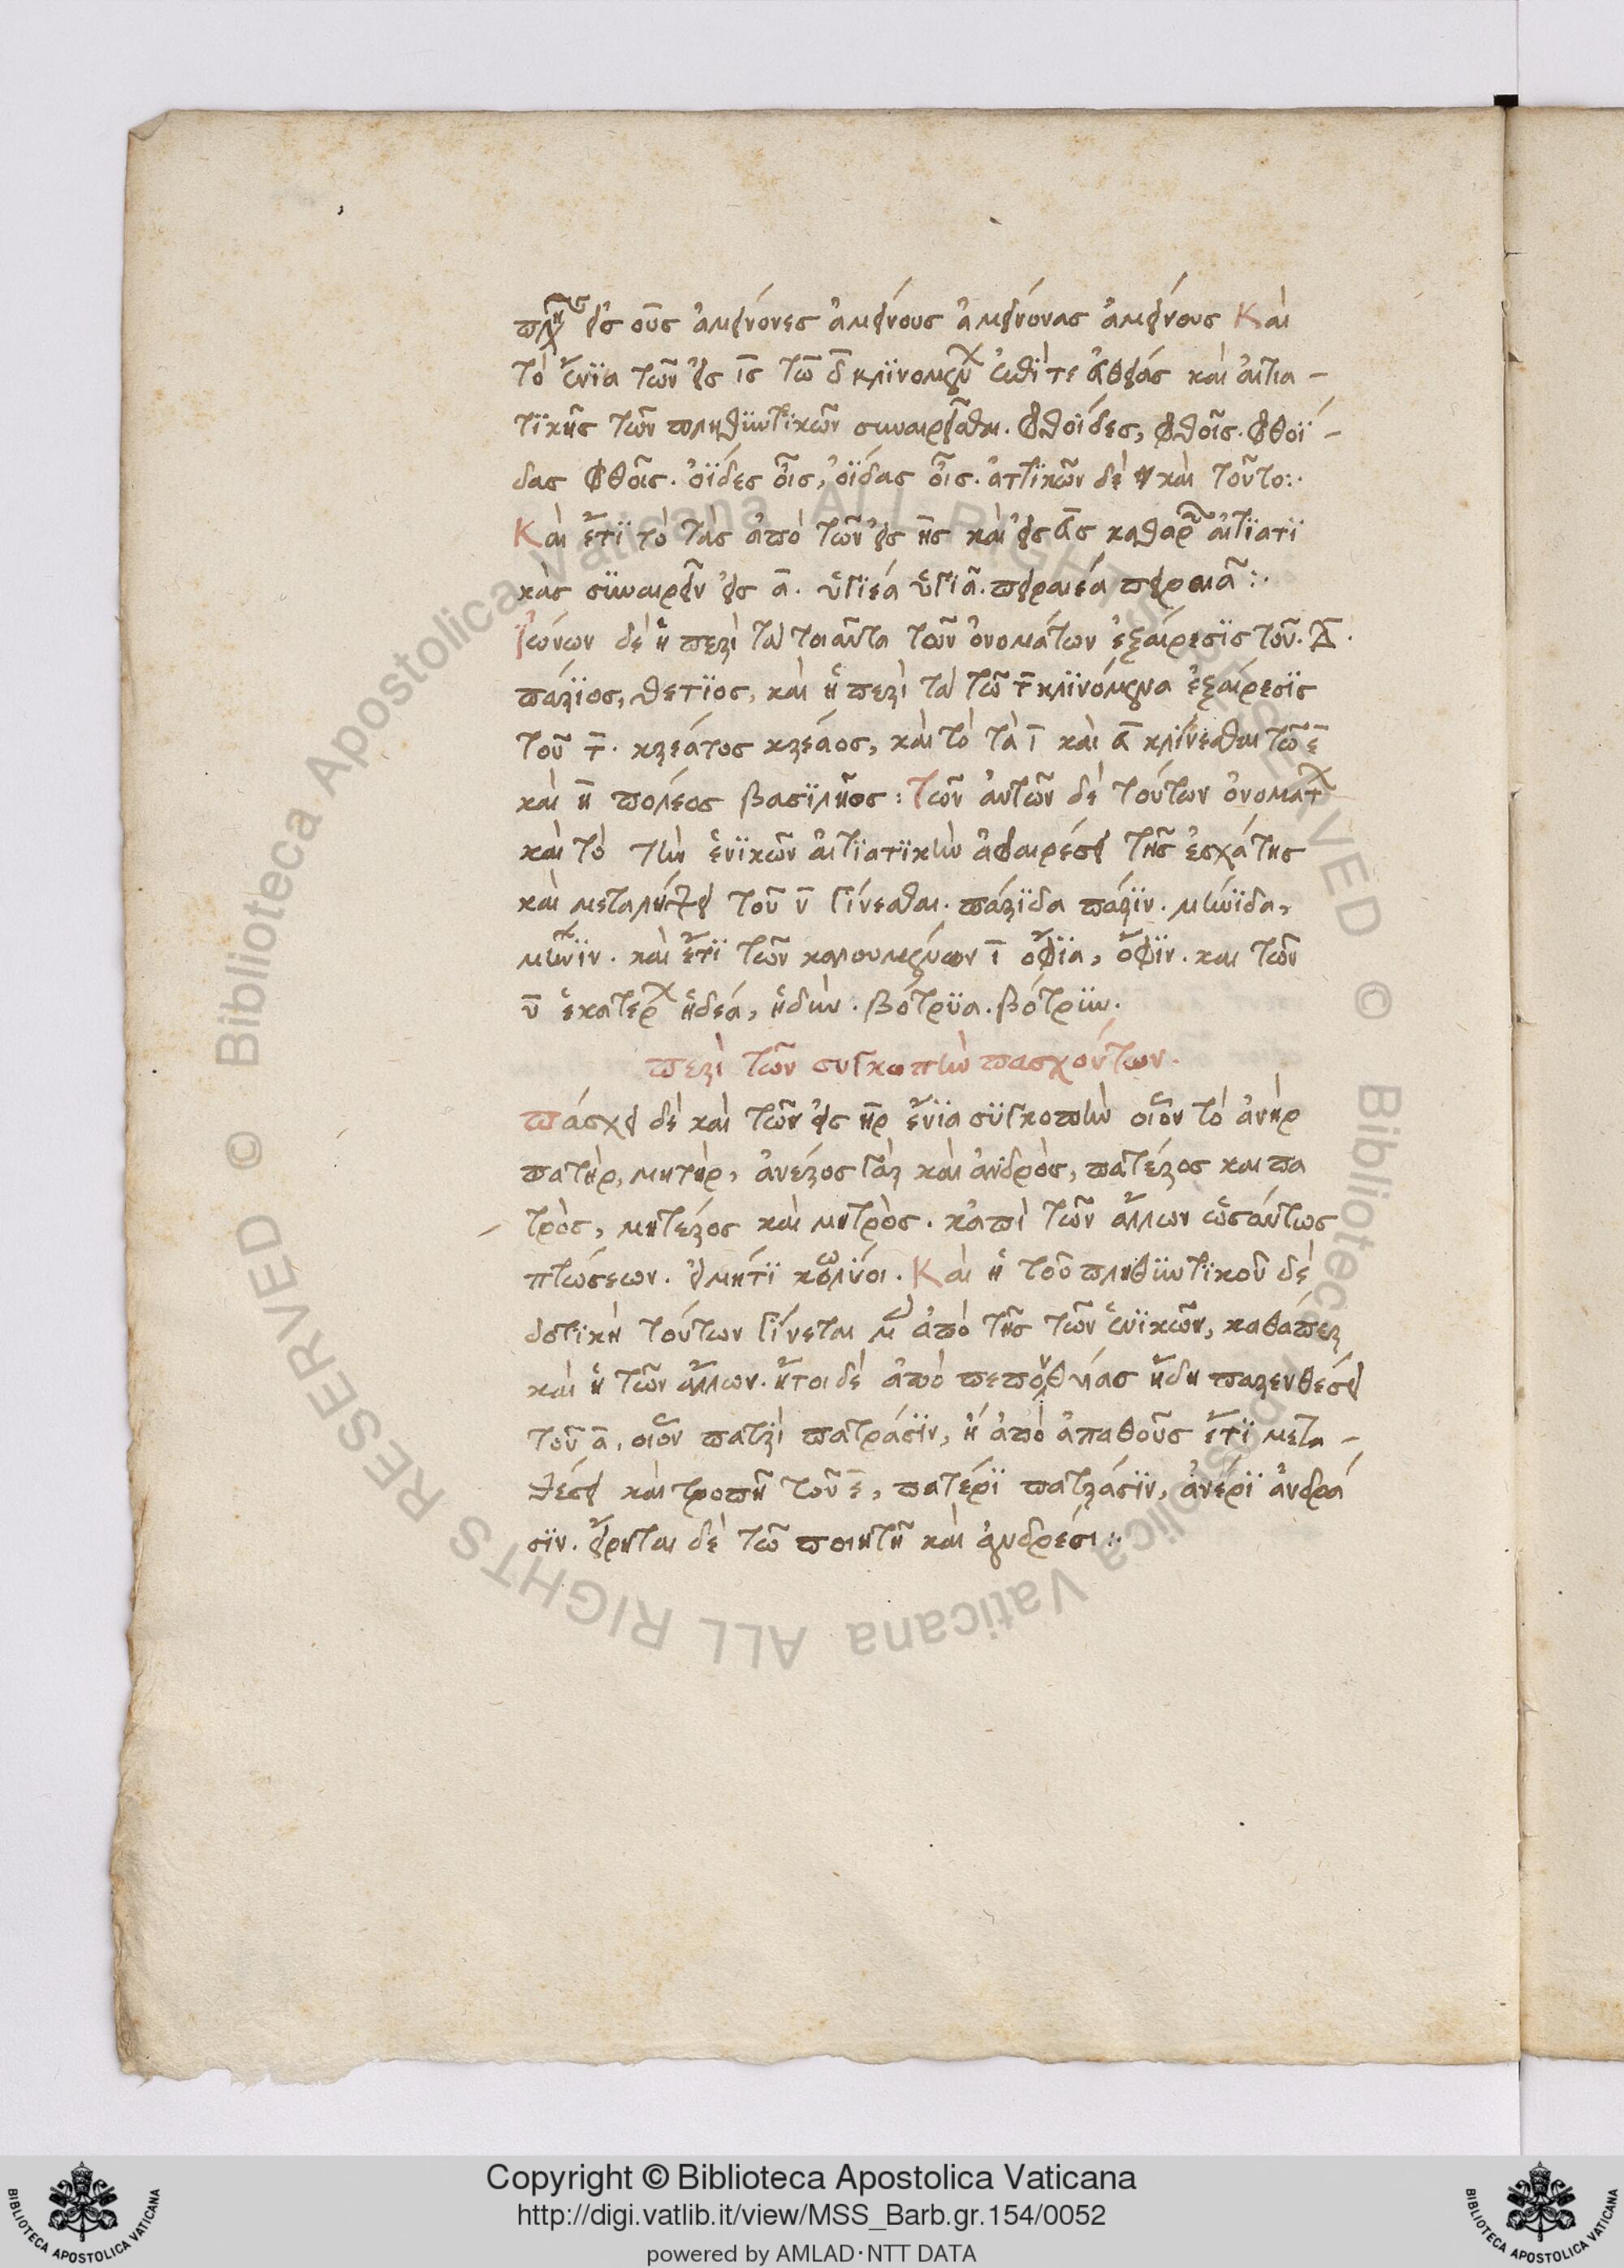 εἰς οῦς ἀμείνονες ἀμείνους ἀμείνονας ἀμείνους Καὶ
τὸ ἔνϊα τῶν εἰς ῑς τῶ δ̄ κλϊνομένων εὐθείας καὶ αἰτια -
τϊκῆς τῶν πληθϋντϊκῶν συναιρεῖσθαι. φθοΐδες, φθοῖς. φθοΐ -
δας φθοῖς. ὀΐδες οἶς, ὀΐδας οἶς. ἀττϊκῶν δὲ καὶ τοῦτο:.
Καὶ ἔτϊ τὸ τὰς ἀπὸ τῶν εἰς η̄ς καὶ εἰς ᾱς καθαρ αἰτϊατϊ
κὰς συναιρεῖν εἰς ᾱ. ὑγϊέα ὑγϊᾶ. πειραιέα πειραιᾶ:.
ἰώνων δὲ ἡ περὶ τὰ τοιαῦτα τῶν ὀνομάτων ἐξαίρεσϊς τοῦ. Δ̄.
πάρϊος, θετϊος, καὶ ἡ περὶ τὰ τῶ τ̄ κλϊνόμενα ἐξαίρεσϊς
τοῦ τ̄. κρεάτος κρεάος, καὶ τὸ τὰ ῑ καὶ ᾱ κλίνεσθαι τῶ ε̄
καὶ η̄ πολέος βασϊλῆος: Τῶν αὐτῶν δὲ τούτων ὀνομάτ
καὶ τὸ τὴν ἑνϊκῶν αἰτϊατϊκὴν ἀφαιρέσει τῆς ἐσχάτης
καὶ μεταλήψει τοῦ ν̄ γίνεσθαι. πάρϊδα πάρϊν. μήνϊδα,
μῆνϊν. καὶ ἔτϊ τῶν καλουμένων ῑ ὄφϊα, ὄφϊν. και τῶν
ῡ ἑκατερ ἡδέα, ἡδὺν. βότρϋα. βότρϋν.
περὶ τῶν συγκοπὴν πασχόντων.
πάσχει δὲ καὶ τῶν εἰς η̄ρ ἔνϊα συγκοπὴν οἷον τὸ ἀνὴρ
πατὴρ, μητὴρ, ἀνέρος γὰρ καὶ ἀνδρὸς, πατέρος και πα
τρὸς, μητέρος καὶ μητρὸς. κἀπὶ τῶν ἄλλων ὡσαύτως
πτώσεων. εἰ μήτϊ κωλύοι. Καὶ ἡ τοῦ πληθϋντϊκοῦ δὲ
δοτϊκὴ τούτων γίνεται μὲν ἀπὸ τῆς τῶν ἑνϊκῶν, καθάπερ
καὶ ἡ τῶν ἄλλων. ἤτοι δὲ ἀπὸ πεπονθυίας ἤδη παρενθέσει
τοῦ ᾱ, οἷον πατρὶ πατράσϊν, ἢ ἀπὸ ἀπαθοῦς ἔτϊ μετα -
θέσει καὶ τροπῆ τοῦ ε̄, πατέρϊ πατράσϊν, ἀνέρϊ ἀνδρά
σϊν. εἴρηται δὲ τῶ ποιητῆ καὶ ἀνδρέσι:.
Copyright © Biblioteca Apostolica Vaticana
http://digi.vatlib.it/view/MSS_Barb.gr.154/0052
powered by AMLAD·NTT DATA
BIBLIOTECA APOSTOLICA VATICANA
BIBLIOTECA APOSTOLICA VATICANA
© Biblioteca Apostolica Vaticana ALL RIGHTS RESERVED
© Biblioteca Apostolica Vaticana ALL RIGHTS RESERVED